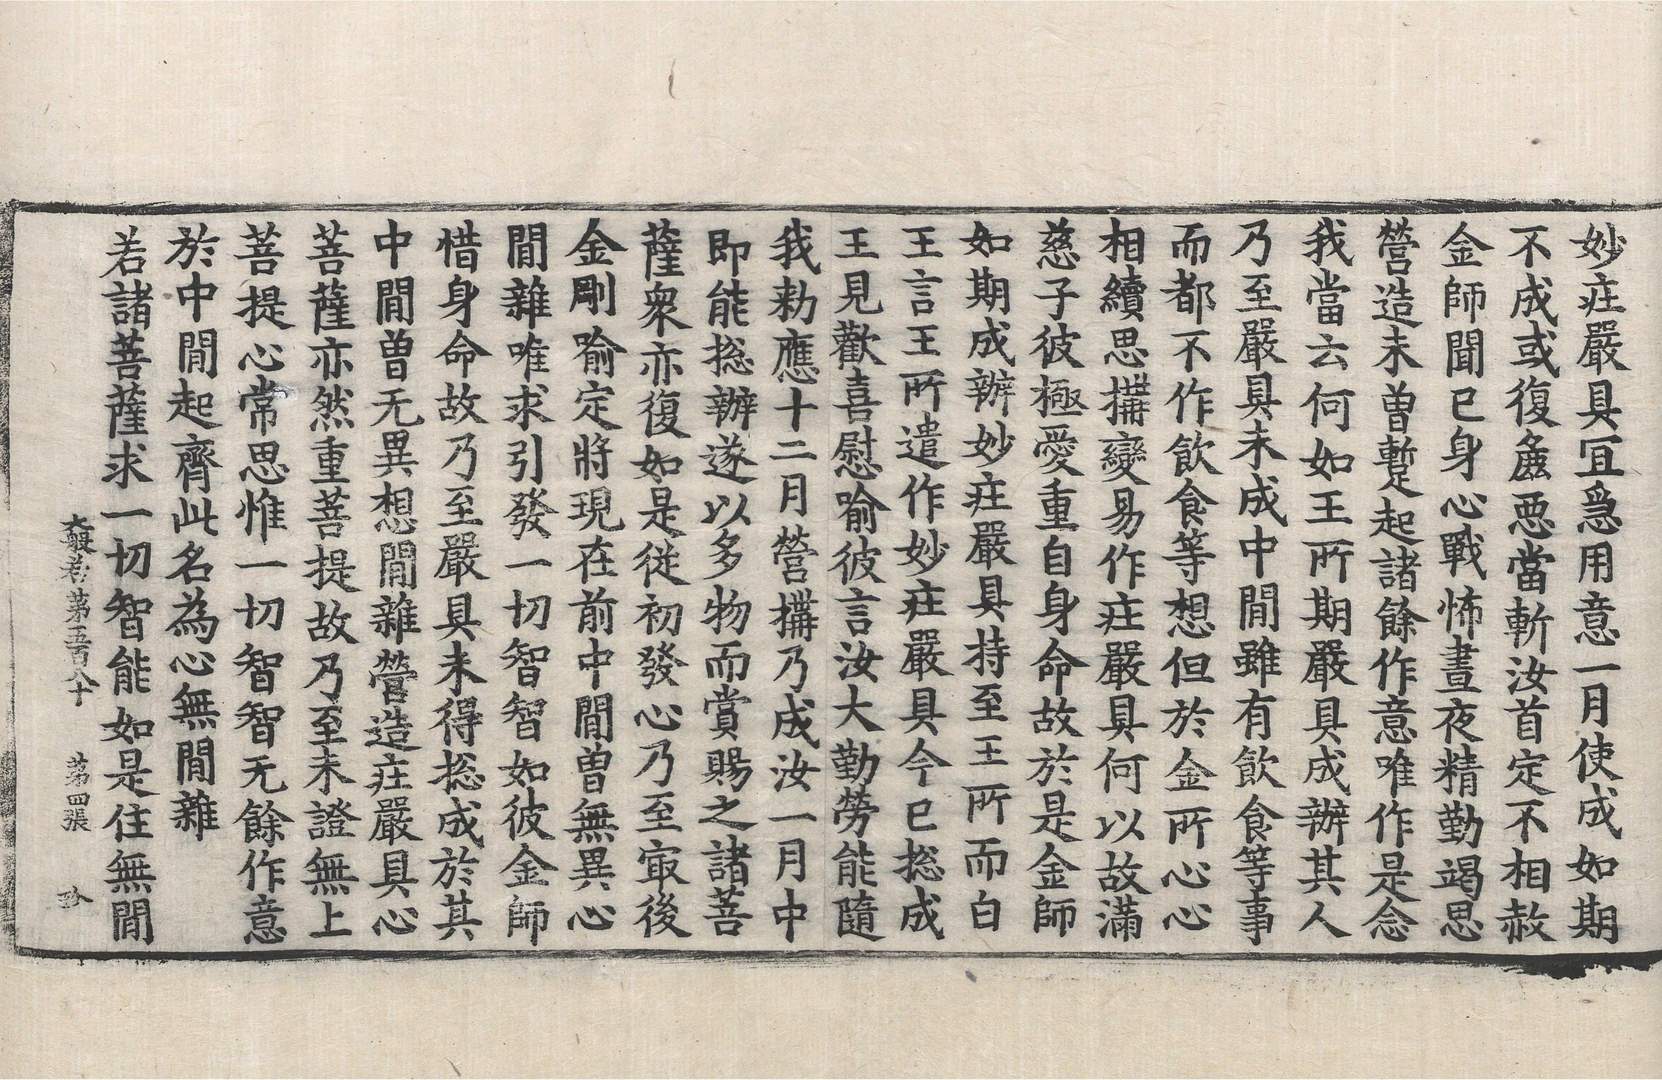 妙庄嚴具宜急用意一月使成如期
不成或復麁惡當斬汝首定不相赦
金師聞已身心戰怖晝夜精勤竭思
營造未曾蹔起諸餘作意唯作是念
我當云何如王所期嚴具成辦其人
乃至嚴具未成中閒雖有飲食等事
而都不作飲食等想但於金所心心
相續思搆變易作庄嚴具何以故滿
慈子彼極愛重自身命故於是金師
如期成辦妙庄嚴具持至王所而白
王言王所遣作妙庄嚴具今已捴成
王見歡喜慰喻彼言汝大勤勞能隨
我勑應十二月營搆乃成汝一月中
即能捴辦遂以多物而賞賜之諸菩
薩衆亦復如是從初發心乃至冣後
金剛喻定將現在前中閒曾無異心
閒雜唯求引發一切智智如彼金師
惜身命故乃至嚴具未得捴成於其
中閒曾无異想閒雜營造庄嚴具心
菩薩亦然重菩提故乃至未證無上
菩提心常思惟一切智智无餘作意
於中閒起齊此名為心無閒雜
若諸菩薩求一切智能如是住無閒
大般若第五百八十　第四張　珎